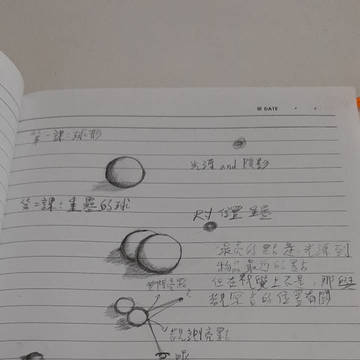 DATE
第一課:球形
光源 and 陰影
第二課:重疊的球
尺寸 位置 重疊
最亮的點是光源到
物品最近的點
但在視覺上不是,那與
觀察者的位置有關
觀測亮點
眼